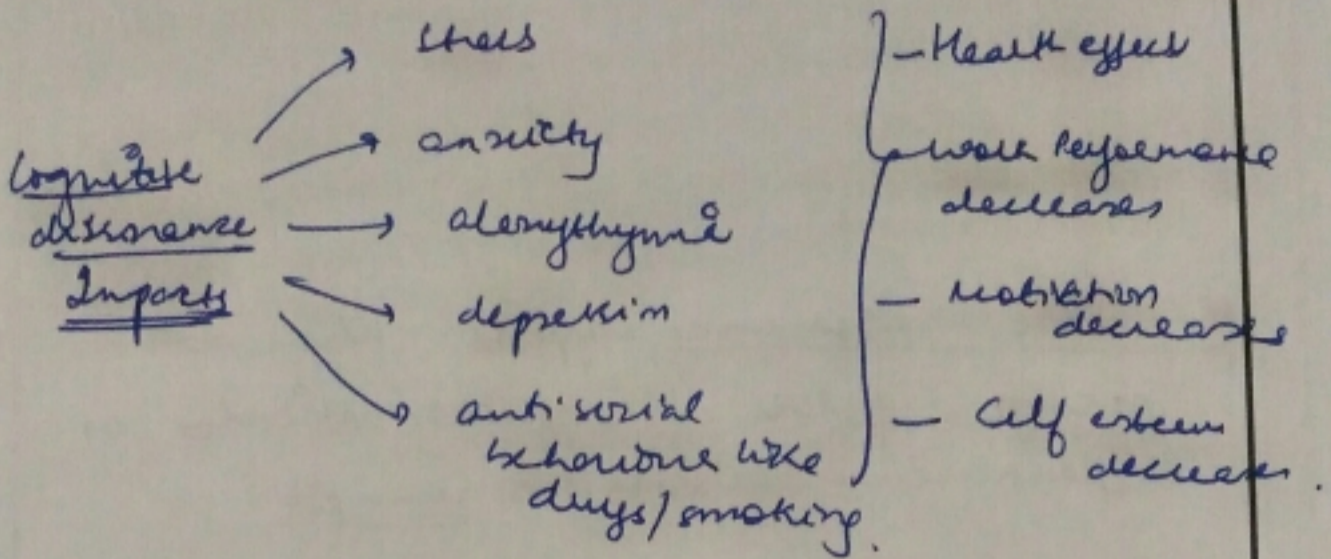 Cognitive
dissonance
Impacts
stress
anxiety
alexythymia
depression
anti social
behaviour like
drugs/smoking.
- Health effect
- work Performance
decreases
- Motivation
decreases
- Self esteem
decreases.